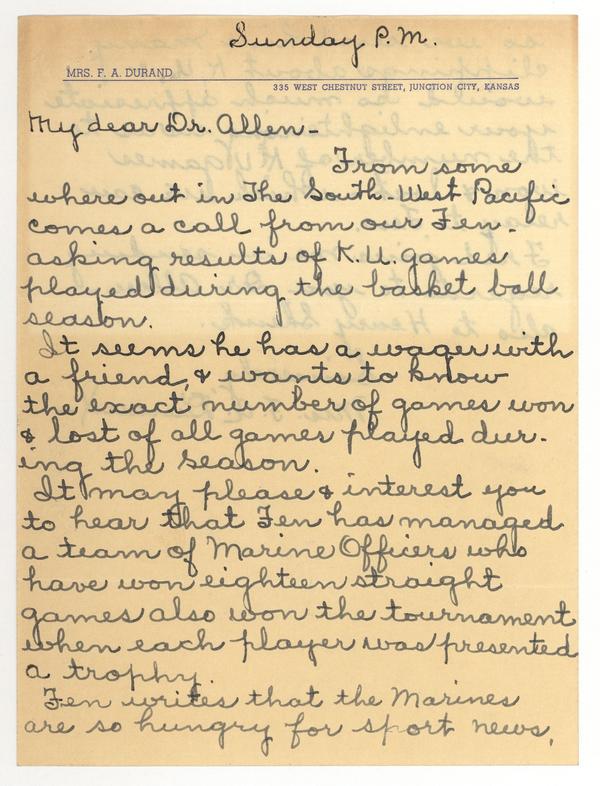 Sunday P.M.
MRS. F. A. DURAND
335 WEST CHESTNUT STREET, JUNCTION CITY, KANSAS
My dear Dr. Allen-
From some
where out in The South-West Pacific
comes a call from our Fen-
asking results of K.U. games
played during the basket ball
season.
It seems he has a wager with
a friend, & wants to know
the exact number of games won
& lost of all games played dur-
ing the season.
It may please & interest you
to hear that Fen has managed
a team of Marine Officers who
have won eighteen straight
games also won the tournament
when each player was presented
a trophy.
Fen writes that the Marines
are so hungry for sport news,